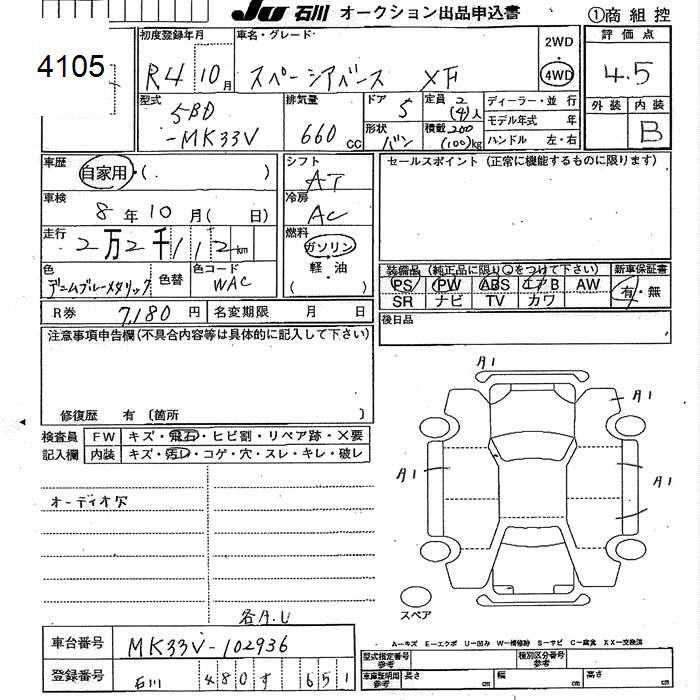 JU 石川 オークション出品申込書
①商 組 控
4105
初度登録年月
R4 10月
車名・グレード
スペーシアベース XF
2WD
4WD
評価点
4.5
型式
5BD
-MK33V
排気量
660 cc
ドア
5
形状
バン
定員 2
(4)人
積載 200
(100)kg
ディーラー・並 行
モデル年式 年
ハンドル 左・右
外装 内装
B
車歴
自家用・( )
シフト
AT
セールスポイント (正常に機能するものに限ります)
車検
8年 10月( 日)
冷房
AC
走行
2万2千112km
燃料
ガソリン
軽・油
( )
色
デニムブルーメタリック
色替
色コード
WAC
装備品 (純正品に限り○をつけて下さい)
新車保証書
PS PW ABS エアB AW
有・無
SR ナビ TV カワ
R券 7,180円 名変期限 月 日
後日品
注意事項申告欄(不具合内容等は具体的に記入して下さい)
修復歴 有 〔箇所 〕
検査員
記入欄
FW キズ・飛石・ヒビ割・リペア跡・X要
内装 キズ・汚レ・コゲ・穴・スレ・キレ・破レ
A1
A1
A1
A1
オーディオ欠
スペア
各A.U
車台番号 MK33V-102936
登録番号 石川 480 す 651
A―キズ E―エクボ U―凹み W―補修跡 S―サビ C―腐食 XX―交換済
型式指定番号
参考
種別区分番号
参考
車庫証明用
参考
長さ cm 幅 cm 高さ cm